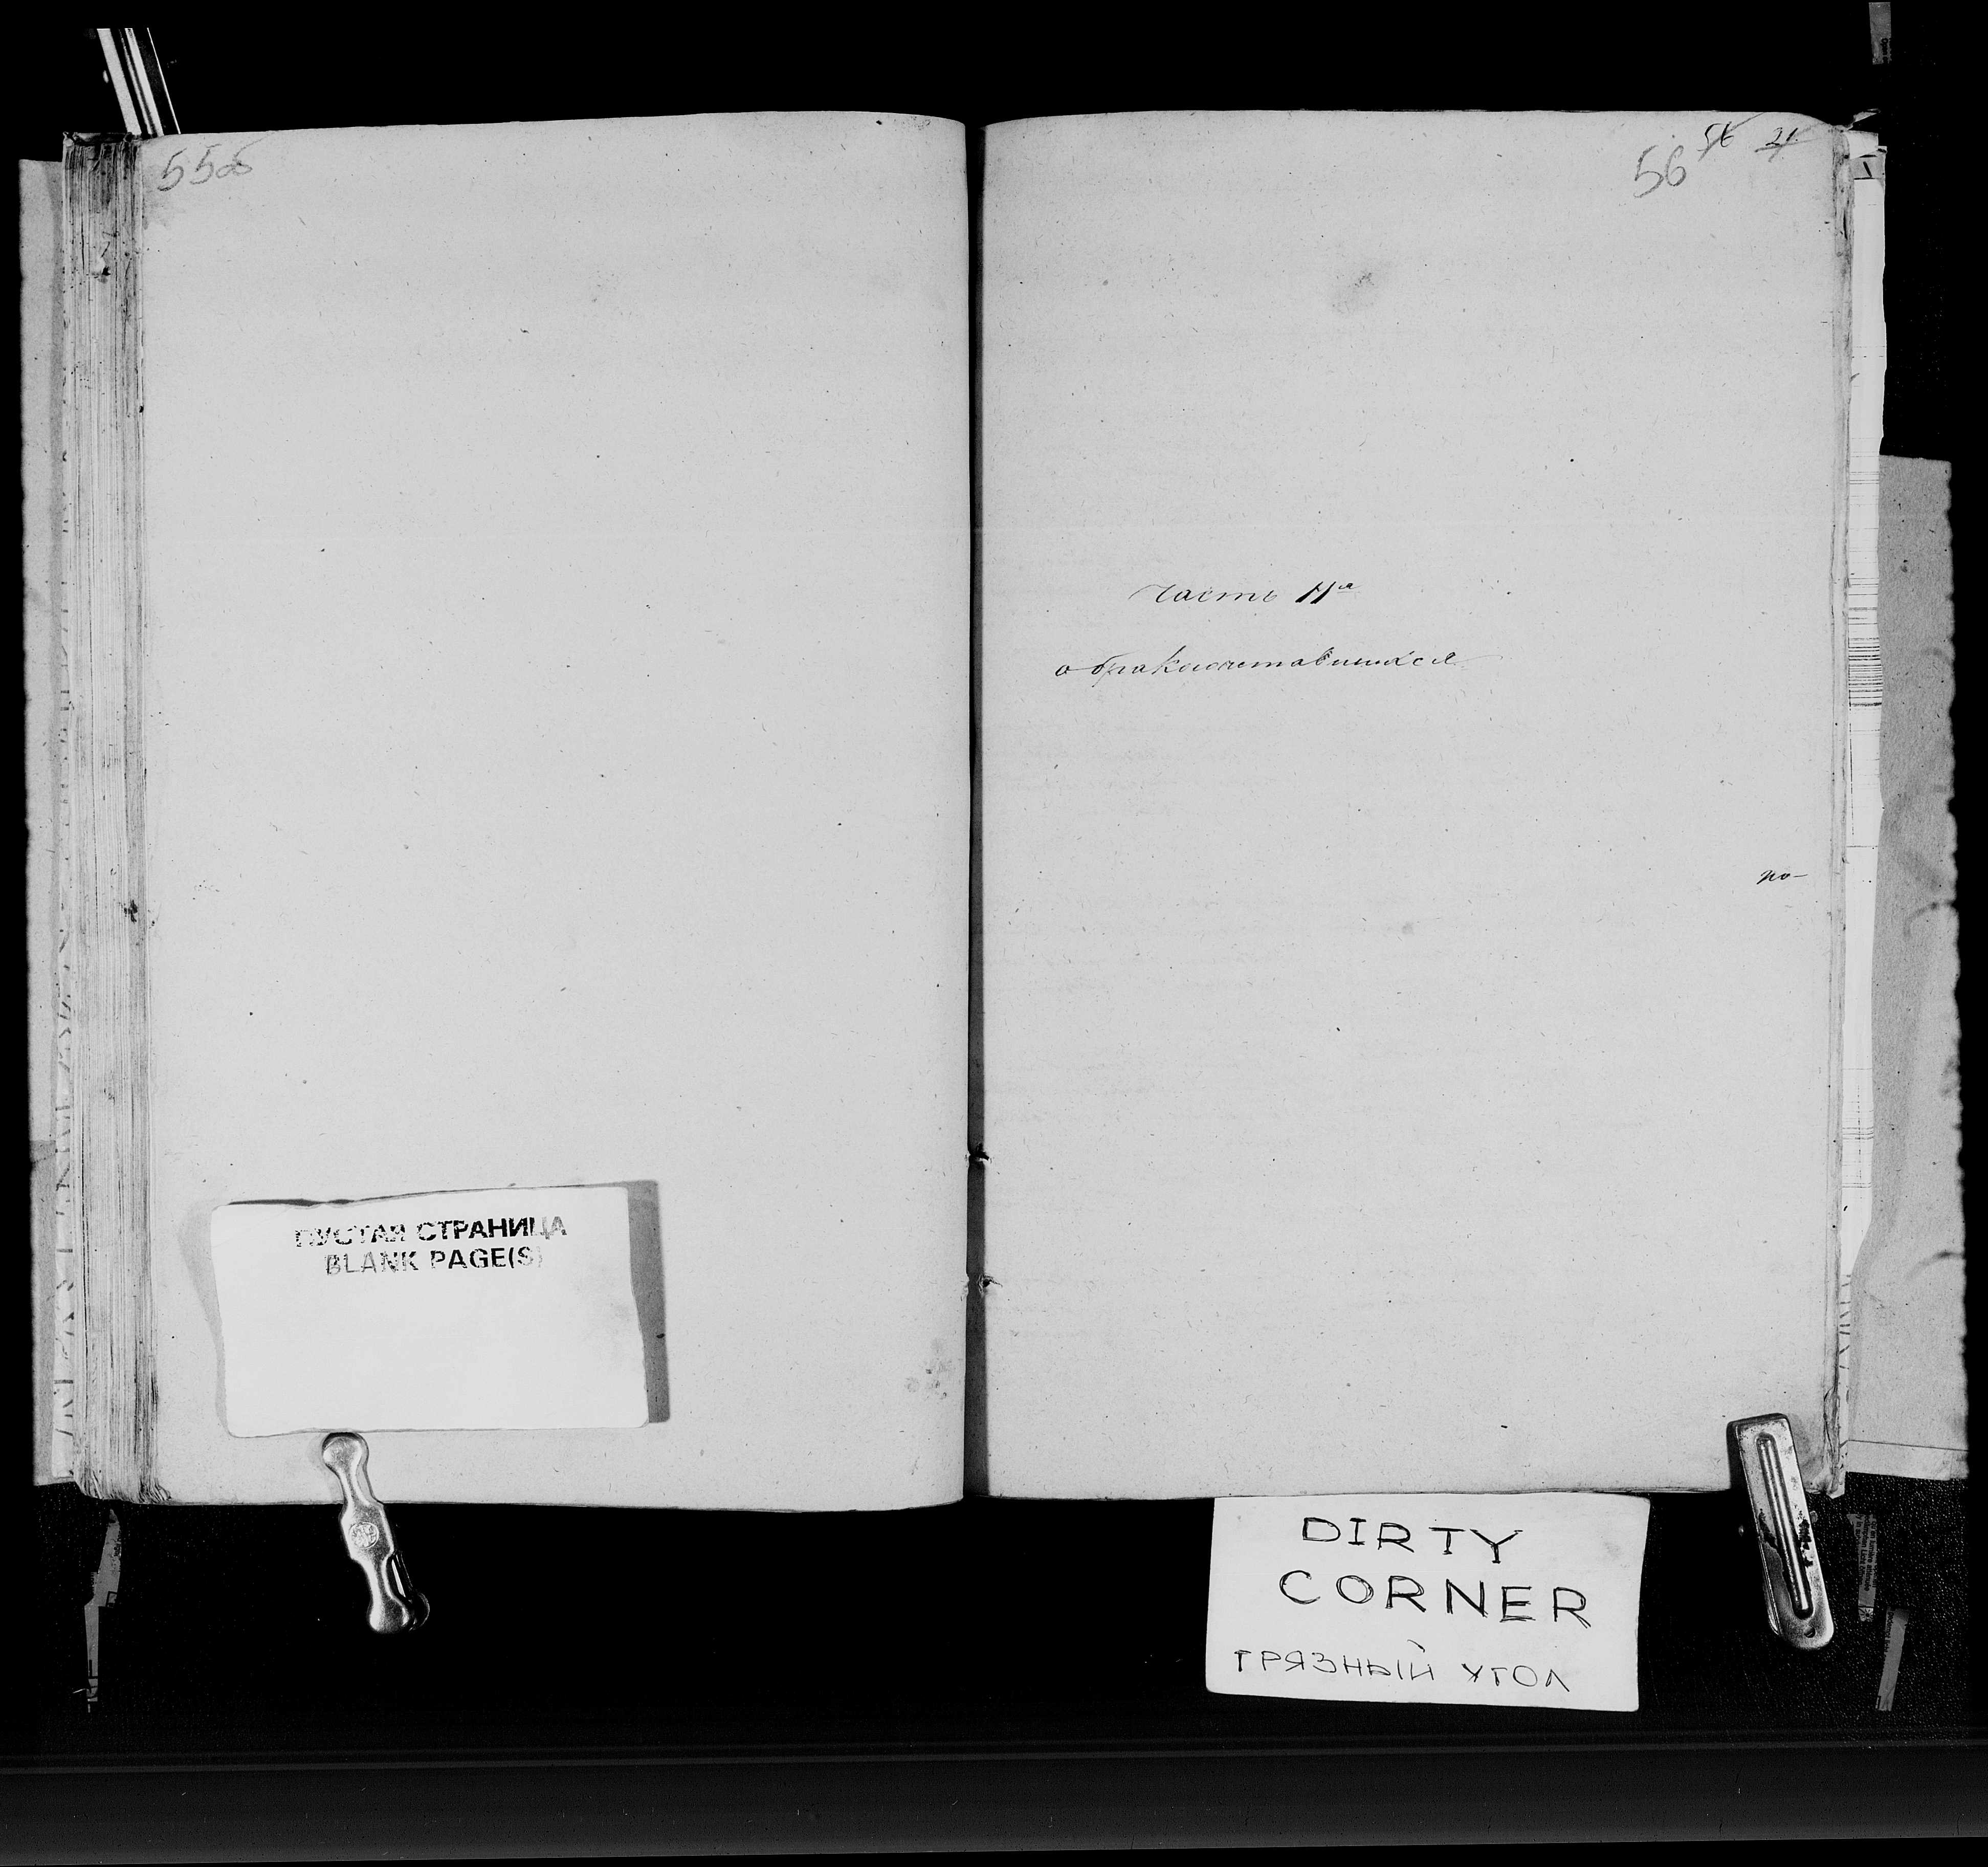 55об
56 56 21
Часть IIя
о бракосочетавшихся
по-
ПУСТАЯ СТРАНИЦА
BLANK PAGE(S)
DIRTY
CORNER
ГРЯЗНЫЙ УГОЛ